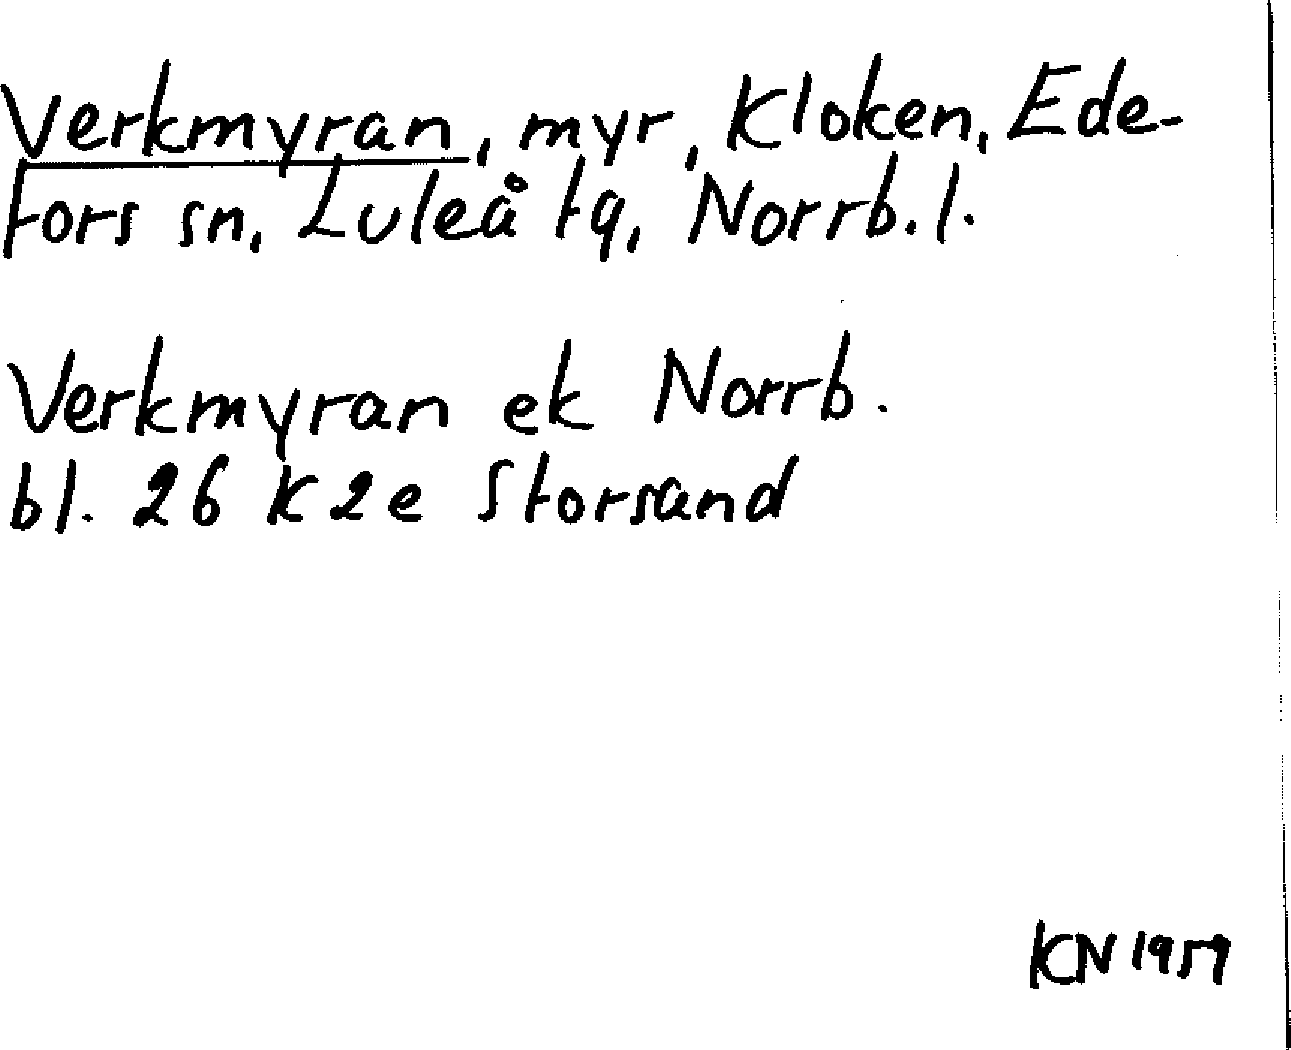 Verkmyran, myr, Kloken, Ede-
fors sn, Luleå tg, Norrb. l.
Verkmyran ek Norrb.
bl. 26 K 2e Storsand
KN 1959